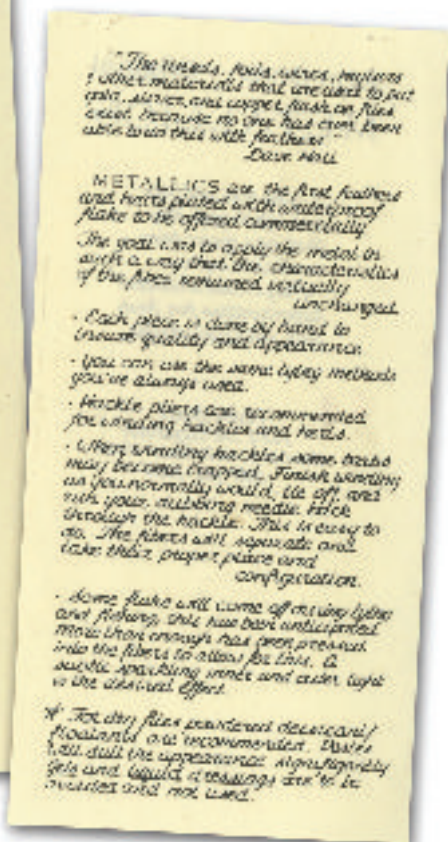 "The tinsels, foils, wires, mylars
& other materials that are used to put
gold, silver, and copper flash on flies
exist because no one has ever been
able to do this with feathers"
Dave Hall
METALLICS are the first feathers
and hairs plated with waterproof
flake to be offered commercially
The goal was to apply the metal in
such a way that the characteristics
of the fibers remained virtually
unchanged.
• Each piece is done by hand to
insure quality and appearance.
• You can use the same tying methods
you've always used.
• Hackle pliers are recommended
for winding hackles and herls.
• When winding hackles some barbs
may become trapped. Finish winding
as you normally would, tie off, and
run your dubbing needle back
through the hackle. This is easy to
do. The fibers will separate and
take their proper place and
configuration.
• Some flake will come off during tying
and fishing, this has been anticipated
more than enough has been pressed
into the fibers to allow for this. A
subtle sparkling inner and outer light
is the desired effect.
* For dry flies powdered desiccant/
floatants are recommended. Pastes
will dull the appearance significantly
Gels and liquid dressings are to be
avoided and not used.